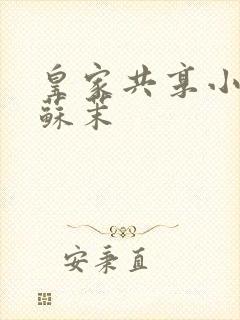 皇家共享小
蘇茉
安秉直